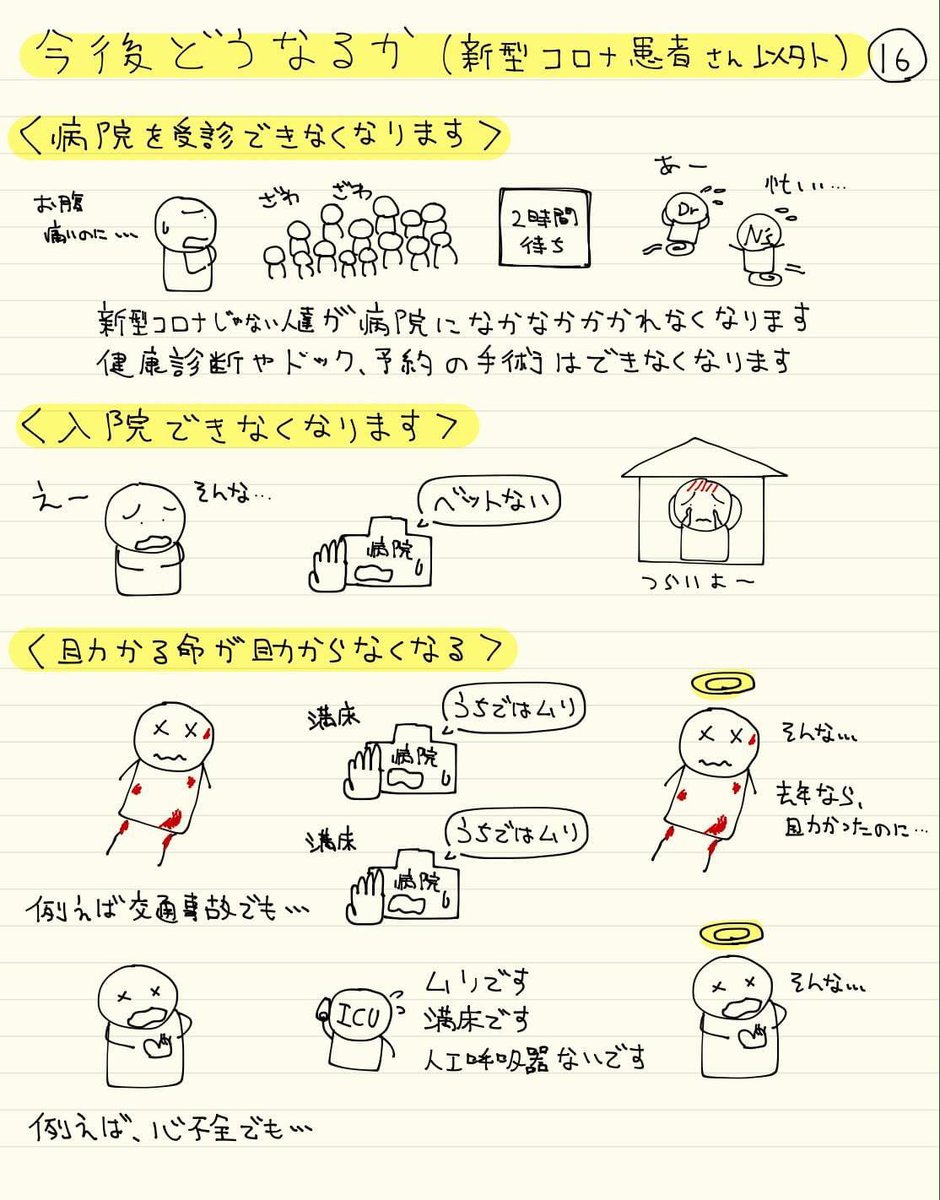 今後どうなるか (新型コロナ患者さん以外) 16
<病院を受診できなくなります>
お腹
痛いのに…
ざわ ざわ
2時間
待ち
あー
Dr
忙しい…
Ns
新型コロナじゃない人達が病院になかなかかかれなくなります
健康診断やドック、予約の手術はできなくなります
<入院できなくなります>
えー
そんな…
ベットない
病院
つらいよ〜
<助かる命が助からなくなる>
満床
うちではムリ
病院
満床
うちではムリ
病院
そんな…
去年なら、
助かったのに…
例えば交通事故でも…
ICU
ムリです
満床です
人工呼吸器ないです
そんな…
例えば、心不全でも…